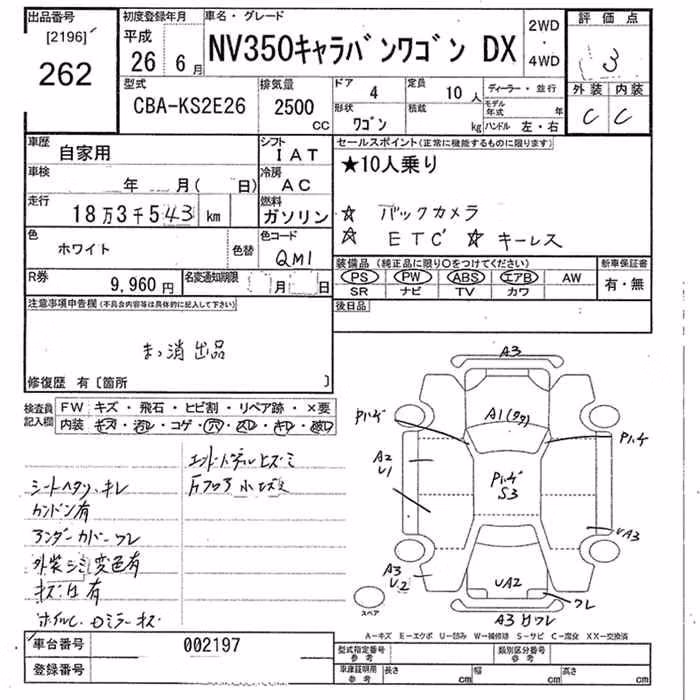 出品番号
[2196]
262
初度登録年月
平成
26 6月
車名・グレード
NV350キャラバンワゴン DX
2WD
・
4WD
評価点
3
外装 内装
C C
型式
CBA-KS2E26
排気量
2500
CC
ドア
4
定員
10人
形状
ワゴン
積載
kg
ディーラー・並行
モデル年式 年
ハンドル 左・右
車歴
自家用
シフト
IAT
車検
年 月( 日)
冷房
AC
走行
18万3千543 km
燃料
ガソリン
色
ホワイト
色替
色コード
QM1
R券
9,960円
名変通知期限
月 日
セールスポイント(正常に機能するものに限ります)
★10人乗り
☆ バックカメラ
☆ ETC ☆ キーレス
装備品(純正品に限り○をつけてください)
PS PW ABS エアB AW
SR ナビ TV カワ
新車保証書
有・無
後日品
注意事項申告欄(不具合内容等は具体的に記入して下さい)
まっ消出品
修復歴 有〔箇所 〕
検査員
記入欄
FW キズ・飛石・ヒビ割・リペア跡・×要
内装 キズ・汚レ・コゲ・穴・スレ・キレ・破レ
シートヘタリ・キレ
サンドン有
アンダーカバーワレ
外装シミ変色有
キズ凹有
片フロア小エクボ
A3
A1(ワク)
Pハゲ
Pハゲ
A2
U1
Pハゲ
S3
UA3
A3
U2
UA2
ワレ
スペア
A3 Uワレ
A-キズ E-エクボ U-凹み W-補修跡 S-サビ C-腐食 XX-交換済
車台番号
002197
登録番号
型式指定番号
参考
類別区分番号
参考
車庫証明用
参考
長さ cm
幅 cm
高さ cm